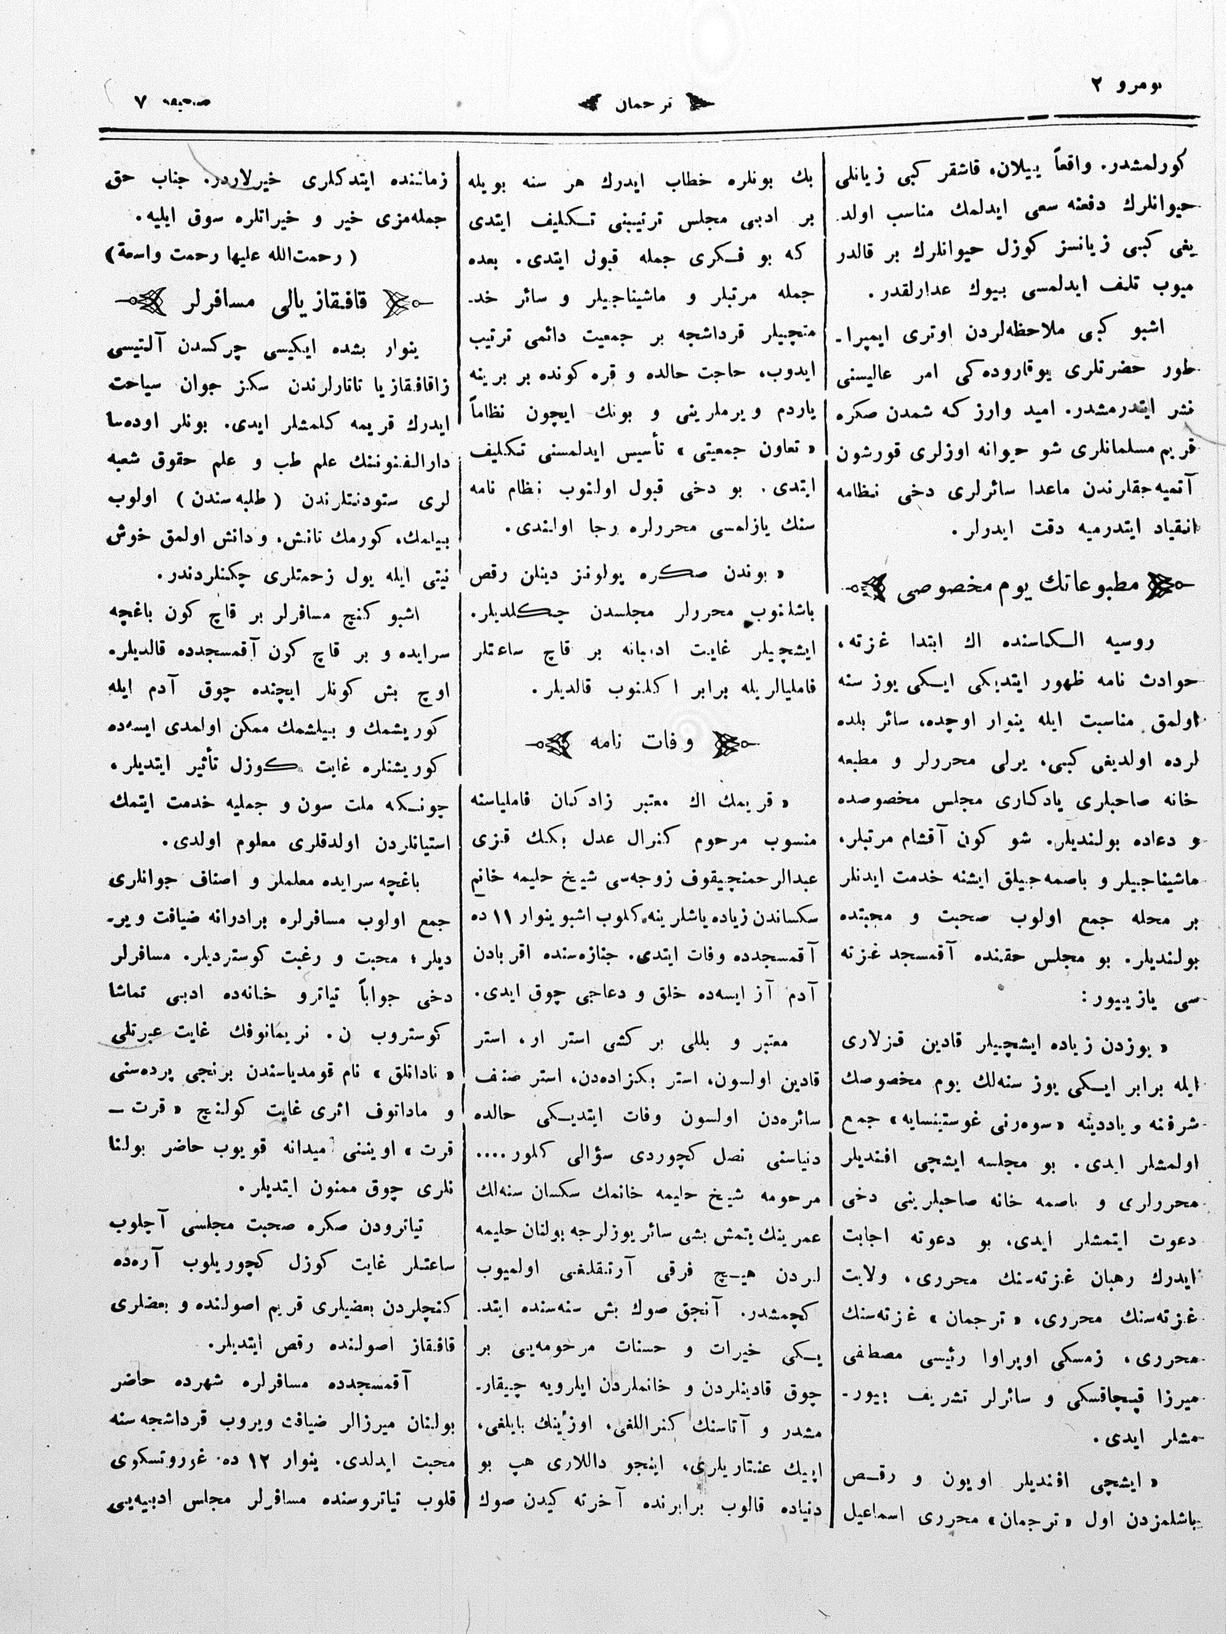 نومرو ٢
ترجمان
صحيفه ٧
كورلمشدر. واقعاً ييلان، قاشقر كبى زيانلى
حيوانلرك دفعنه سعى ايدلمك مناسب اولد
يغى كبى زيانسز كوزل حيوانلرك بر قالدر
ميوب تلف ايدلمسى بيوك عدارلقدر.
اشبو كبى ملاحظه‌لردن اوترى ايمپرا-
طور حضرتلرى يوقاروده‌كى امر عاليسنى
نشر ايتدرمشدر. اميد وارز كه شمدن صكره
قريم مسلمانلرى شو حيوانه اوزلرى قورشون
آتميه‌جقلرندن ماعدا سائرلرى دخى نظامه
انقياد ايتدرميه دقت ايدرلر.
مطبوعاتك يوم مخصوصى
روسيه الكاسنده اك ابتدا غزته،
حوادث نامه ظهور ايتديكى ايكى يوز سنه
اولمق مناسبت ايله ينوار اوچده، سائر بلده
لرده اولديغى كبى، يرلى محررلر و مطبعه
خانه صاحبلرى يادكارى مجلس مخصوصده
و دعاده بولنديلر. شو كون آقشام مرتبلر،
ماشيناجيلر و باصمه‌جيلق ايشنه خدمت ايدنلر
بر محله جمع اولوب صحبت و محبتده
بولنديلر. بو مجلس حقنده آقمسجد غزته
سى يازييور:
« يوزدن زياده ايشچيلر قادين قزلارى
ايله برابر ايكى يوز سنه‌لك يوم مخصوصك
شرفنه و يادينه «سوه‌رنى غوستينسايه» جمع
اولمشلر ايدى. بو مجلسه ايشچى افنديلر
محررلرى و باصمه خانه صاحبلرينى دخى
دعوت ايتمشلر ايدى، بو دعوته اجابت
ايدرك رهبان غزته‌سنك محررى، ولايت
غزته‌سنك محررى، «ترجمان» غزته‌سنك
محررى، زمسكى اوپراوا رئيسى مصطفى
ميرزا قپچاقسكى و سائرلر تشريف بيور-
مشلر ايدى.
« ايشچى افنديلر اويون و رقص
باشلمزدن اول «ترجمان» محررى اسماعيل
بك بونلره خطاب ايدرك هر سنه بويله
بر ادبى مجلس ترتيبنى تكليف ايتدى
كه بو فكرى جمله قبول ايتدى. بعده
جمله مرتبلر و ماشيناجيلر و سائر خد-
متچيلر قرداشجه بر جمعيت دائمى ترتيب
ايدوب، حاجت حالده و قره كونده بر برينه
ياردم ويرملرينى و بونك ايچون نظاماً
« تعاون جمعيتى » تأسيس ايدلمسنى تكليف
ايتدى. بو دخى قبول اولنوب نظام نامه
سنك يازلمسى محررلره رجا اولندى.
« بوندن صكره پولونز دينلن رقص
باشلنوب محررلر مجلسدن چكلديلر.
ايشچيلر غايت اديبانه بر قاچ ساعتلر
فاميليالريله برابر اكلنوب قالديلر.
وفات نامه
« قريمك اك معتبر زادكان فاميلياسنه
منسوب مرحوم كنرال عدل بكك قزى
عبدالرحمنچيقوف زوجه‌سى شيخ حليمه خانم
سكساندن زياده ياشلرينه كلوب اشبو ينوار ١١ ده
آقمسجدده وفات ايتدى. جنازه‌سنده اقربادن
آدم آز ايسه‌ده خلق و دعاجى چوق ايدى.
معتبر و بللى بر كشى استر او، استر
قادين اولسون، استر بكزاده‌دن، استر صنف
سائره‌دن اولسون وفات ايتديكى حالده
دنياسنى نصل كچوردى سؤالى كلور....
مرحومه شيخ حليمه خانمك سكسان سنه‌لك
عمرينك يتمش بشى سائر يوزلرجه بولنان حليمه
لردن هيچ فرقى آرتقلغى اولميوب
كچمشدر. آنجق صوك بش سنه‌سنده ايتد-
يكى خيرات و حسنات مرحومه‌يى بر
چوق قادينلردن و خانملردن ايلرويه چيقار-
مشدر و آتاسنك كنراللغى، اوزينك بايلغى،
ايپك عنتاريلرى، اينجو داللارى هپ بو
دنياده قالوب برابرنده آخرته كيدن صوك
زماننده ايتدكلرى خيرلاردر. جناب حق
جمله‌مزى خير و خيراتلره سوق ايليه.
(رحمت‌الله عليها رحمت واسعة)
قافقازيالى مسافرلر
ينوار بشده ايكيسى چركسدن آلتيسى
زاقافقازيا تاتارلرندن سكز جوان سياحت
ايدرك قريمه كلمشلر ايدى. بونلر اوده‌سا
دارالفنوننك علم طب و علم حقوق شعبه
لرى ستودنتلرندن (طلبه‌سندن) اولوب
بيلمك، كورمك تانش، و دانش اولمق خوش
نيتى ايله يول زحمتلرى چكنلردندر.
اشبو كنچ مسافرلر بر قاچ كون باغچه
سرايده و بر قاچ كون آقمسجدده قالديلر.
اوچ بش كونلر ايچنده چوق آدم ايله
كوريشمك و بيلشمك ممكن اولمدى ايسه‌ده
كوريشنلره غايت كوزل تأثير ايتديلر.
چونكه ملت سون و جمليه خدمت ايتمك
استيانلردن اولدقلرى معلوم اولدى.
باغچه سرايده معلملر و اصناف جوانلرى
جمع اولوب مسافرلره برادرانه ضيافت وير-
ديلر؛ محبت و رغبت كوسترديلر. مسافرلر
دخى جواباً تياترو خانه‌ده ادبى تماشا
كوستروب ن. نريمانوفك غايت عبرتلى
« نادانلق » نام قومدياسندن برنجى پرده‌سنى
و ماداتوف اثرى غايت كولنچ « قرت ــ
قرت » اويننى ميدانه قويوب حاضر بولنا
نلرى چوق ممنون ايتديلر.
تياترودن صكره صحبت مجلسى آچلوب
ساعتلر غايت كوزل كچوريلوب آره‌ده
كنچلردن بعضيلرى قريم اصولنده و بعضلرى
قافقاز اصولنده رقص ايتديلر.
آقمسجدده مسافرلره شهرده حاضر
بولنان ميرزالر ضيافت ويروب قرداشجه‌سنه
محبت ايدلدى. ينوار ١٢ ده غوروتسكوى
قلوب تياتروسنده مسافرلر مجلس ادبيه‌يى